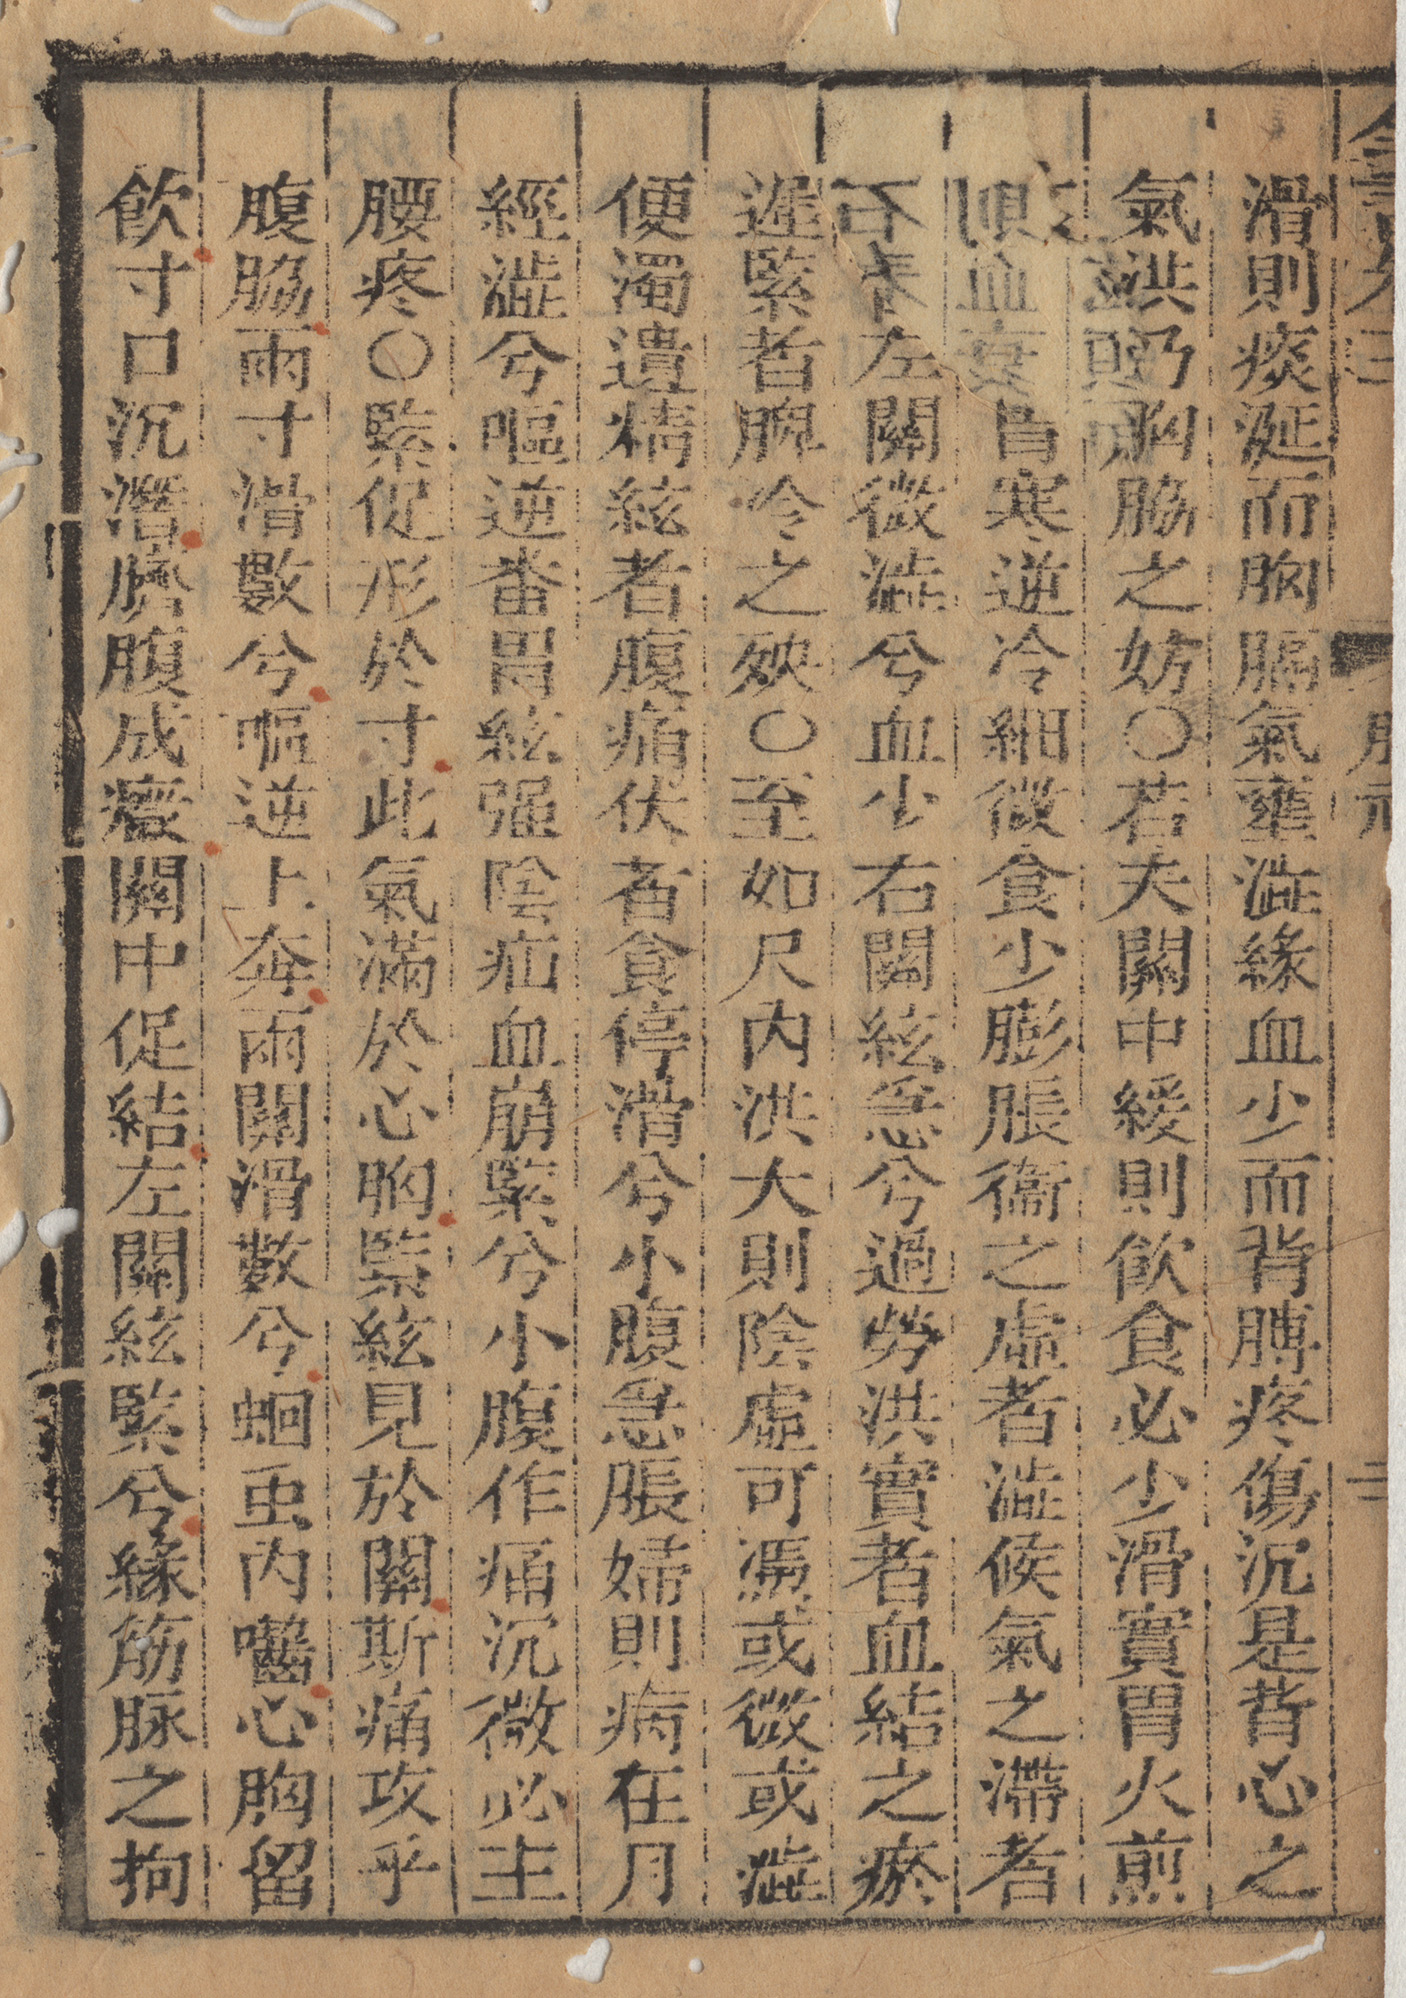 滑則痰涎而胸膈氣壅澁緣血少而背膊疼傷沉是背心之
氣洪乃胸脇之妨〇若夫關中緩則飲食必少滑實胃火煎
胃寒逆冷細微食少膨脹衞之虛者澁候氣之滯者
左關微澁兮血少右關絃急兮過勞洪實者血結之瘀
遲緊者脾冷之殃〇至如尺內洪大則陰虛可凴或微或澁
便濁遺精絃者腹痛伏者食停滑兮小腹急脹婦則病在月
經澁兮嘔逆畨胃絃强陰疝血崩緊兮小腹作痛沉微必主
腰疼〇緊促形於寸此氣滿於心胸緊絃見於關斯痛攻乎
腹脇兩寸滑數兮嘔逆上奔兩關滑數兮蛔虫內嚙心胸留
飲寸口沉潛臍腹成癥關中促結左關絃緊兮緣筋脉之拘